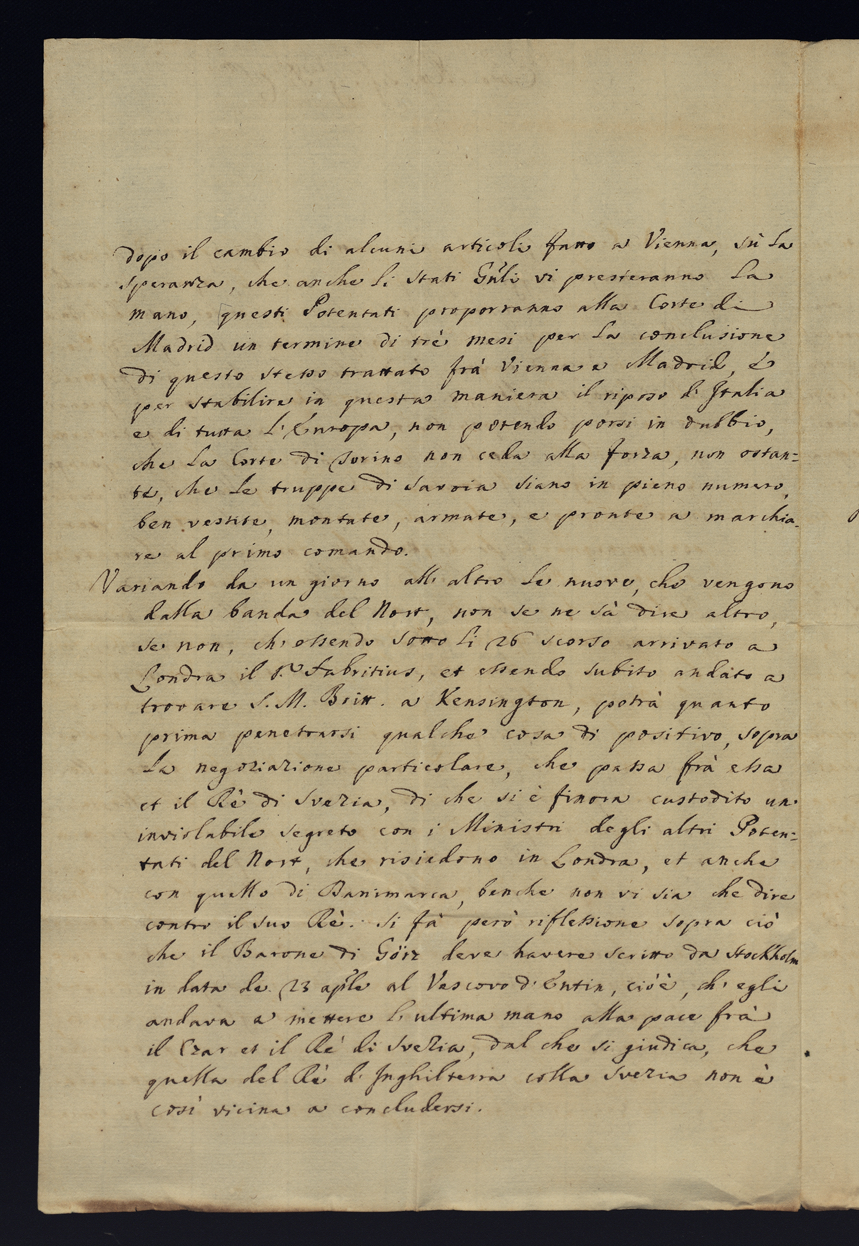 dopo il cambio di alcuni articoli fatto a Vienna, sù la
speranza, che anche li stati Gñli vi presteranno la
mano, questi Potentati proporranno alla Corte di
Madrid un termine di trè mesi per la conclusione
di questo stesso trattato frà Vienna e Madrid, e
per stabilire in questa maniera il riposo d'Italia
e di tutta l'Europa, non potendo porsi in dubbio,
che la Corte di Torino non ceda alla forza, non ostan=
te, che le truppe di Savoia siano in pieno numero,
ben vestite, montate, armate, e pronte a marchia=
re al primo comando.
Variando da un giorno all'altro le nuove, che vengono
dalla banda del Nort, non se ne sà dire altro,
se non, ch'essendo sotto li 26 scorso arrivato a
Londra il S.r Fabritius, et essendo subito andato a
trovare S. M. Britt. a Kensington, potrà quanto
prima penetrarsi qualche cosa di positivo, sopra
la negoziazione particolare, che passa frà essa
et il Rè di Svezia, di che si è finora custodito un
inviolabile segreto con i Ministri degli altri Poten=
tati del Nort, che risiedono in Londra, et anche
con quello di Danimarca, benche non vi sia che dire
contro il suo Rè. Si fà però riflessione sopra ciò
che il Barone di Görz deve havere scritto da Stockholm
in data de 23 aple al Vescovo d'Eutin, cióè, ch'egli
andava a mettere l'ultima mano alla pace frà
il Czar et il Rè di Svezia, dal che si giudica, che
quella del Rè d'Inghilterra colla Svezia non è
così vicina a concludersi.